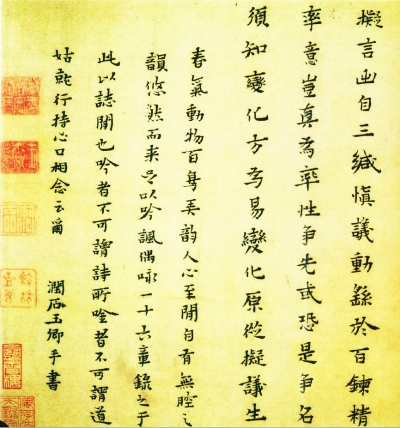 擬言出自三緘慎議動繇於百鍊精
率意豈真為率性爭先或恐是爭名
須知變化方為易變化原從擬議生
春氣動物百鳥弄韵人心至閒自有無腔之
韻悠然而来是以吟諷偶咏一十六章錄之于
此以誌閒也吟者不可謂詩所唫者不可謂道
姑就行持心口相念云爾 潤石玉卿手書